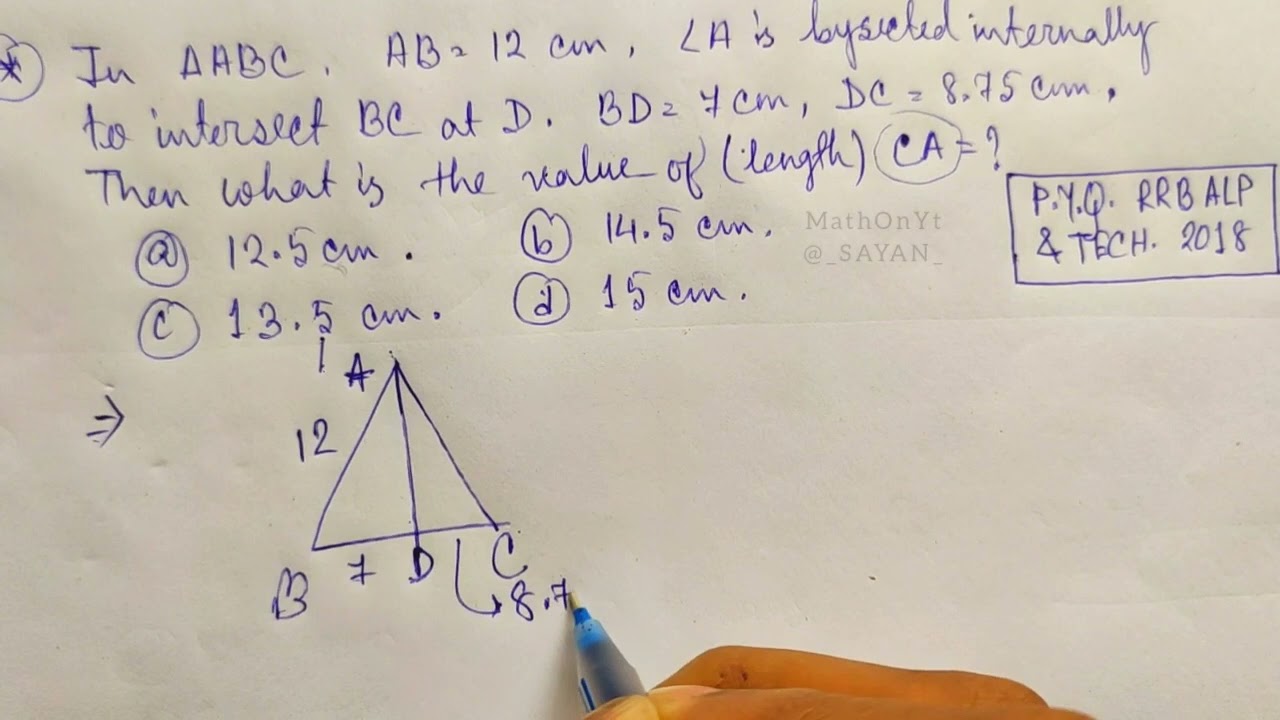 * In ΔABC. AB = 12 cm, ∠A is bysected internally
to intersect BC at D. BD = 7 cm, DC = 8.75 cm.
Then what is the value of (length) CA = ?
P.Y.Q. RRB ALP
& TECH. 2018
a 12.5 cm. b 14.5 cm.
MathOnYt
@_SAYAN_
c 13.5 cm. d 15 cm.
⇒
A
12
B 7 D C
8.7